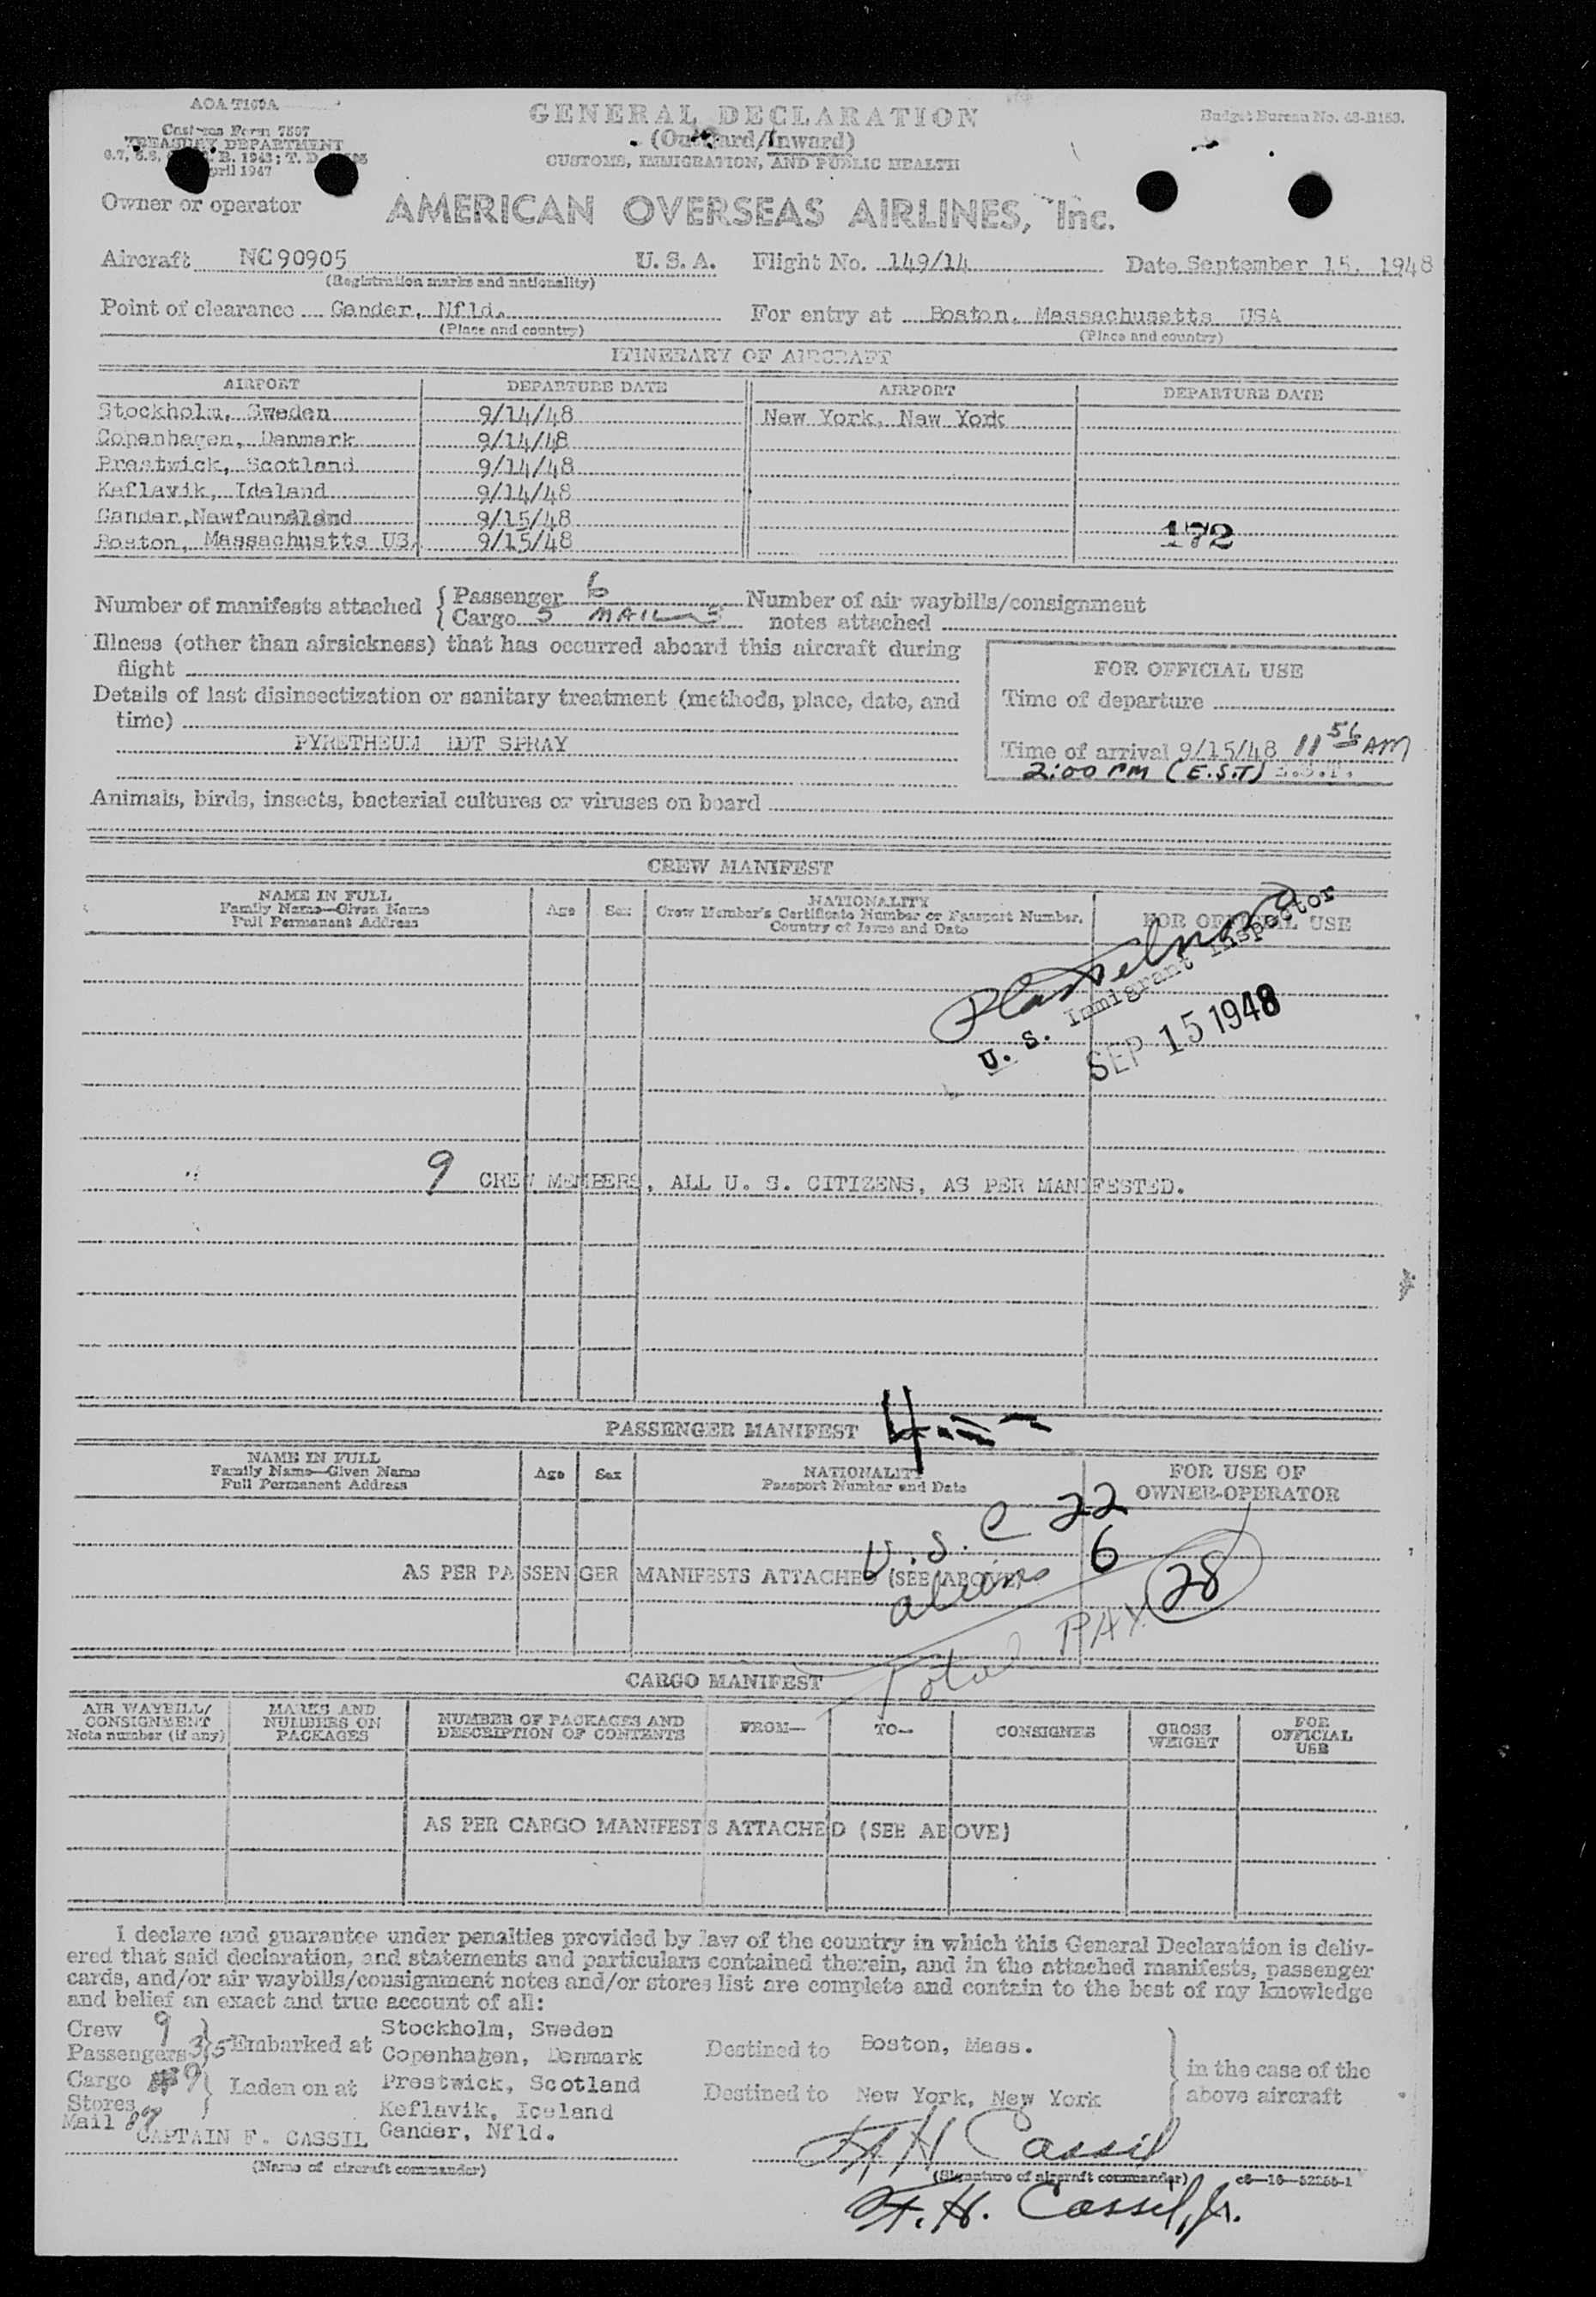 AOA T100A
GENERAL DECLARATION
Budget Bureau No. 43-R153.
Customs Form 7507
TREASURY DEPARTMENT
(Outward/Inward)
April 1947
CUSTOMS, IMMIGRATION, AND PUBLIC HEALTH
Owner or operator AMERICAN OVERSEAS AIRLINES, Inc.
Aircraft NC90905 U. S. A. Flight No. 149/14 Date September 15, 1948
(Registration marks and nationality)
Point of clearance Gander, Nfld. For entry at Boston, Massachusetts USA
(Place and country) (Place and country)
ITINERARY OF AIRCRAFT
AIRPORT DEPARTURE DATE AIRPORT DEPARTURE DATE
Stockholm, Sweden 9/14/48 New York, New York
Copenhagen, Denmark 9/14/48
Prestwick, Scotland 9/14/48
Keflavik, Ideland 9/14/48
Gander, Newfoundland 9/15/48
Boston, Massachustts US. 9/15/48 172
Number of manifests attached { Passenger 6 Number of air waybills/consignment
Cargo 5 MAIL 5 notes attached
Illness (other than airsickness) that has occurred aboard this aircraft during
flight
FOR OFFICIAL USE
Details of last disinsectization or sanitary treatment (methods, place, date, and
time)
Time of departure
PYRETHEUM DDT SPRAY
Time of arrival 9/15/48 11 56 AM
2:00 PM (E.S.T) E.S.T.
Animals, birds, insects, bacterial cultures or viruses on board
CREW MANIFEST
NAME IN FULL
Family Name—Given Name
Full Permanent Address
Age Sex
NATIONALITY
Crew Member's Certificate Number or Passport Number,
Country of Issue and Date
FOR OFFICIAL USE
U. S. Immigrant Inspector
SEP 15 1948
9 CREW MEMBERS, ALL U. S. CITIZENS, AS PER MANIFESTED.
PASSENGER MANIFEST 4
NAME IN FULL
Family Name—Given Name
Full Permanent Address
Age Sex
NATIONALITY
Passport Number and Date
FOR USE OF
OWNER-OPERATOR
U.S.C 22
aliens 6
AS PER PASSENGER MANIFESTS ATTACHED (SEE ABOVE)
Total PAX 28
CARGO MANIFEST
AIR WAYBILL/
CONSIGNMENT
Note number (if any)
MARKS AND
NUMBERS ON
PACKAGES
NUMBER OF PACKAGES AND
DESCRIPTION OF CONTENTS
FROM— TO— CONSIGNEE
GROSS
WEIGHT
FOR
OFFICIAL
USE
AS PER CARGO MANIFESTS ATTACHED (SEE ABOVE)
I declare and guarantee under penalties provided by law of the country in which this General Declaration is deliv-
ered that said declaration, and statements and particulars contained therein, and in the attached manifests, passenger
cards, and/or air waybills/consignment notes and/or stores list are complete and contain to the best of my knowledge
and belief an exact and true account of all:
Crew 9
Passengers 35 } Embarked at
Cargo 9
Stores } Laden on at
Mail 89
Stockholm, Sweden
Copenhagen, Denmark
Prestwick, Scotland
Keflavik, Iceland
Gander, Nfld.
Destined to Boston, Mass.
Destined to New York, New York
in the case of the
above aircraft
CAPTAIN F. CASSIL
(Name of aircraft commander)
F H Cassil
(Signature of aircraft commander) c6—16—52255-1
F. H. Cassil, Jr.